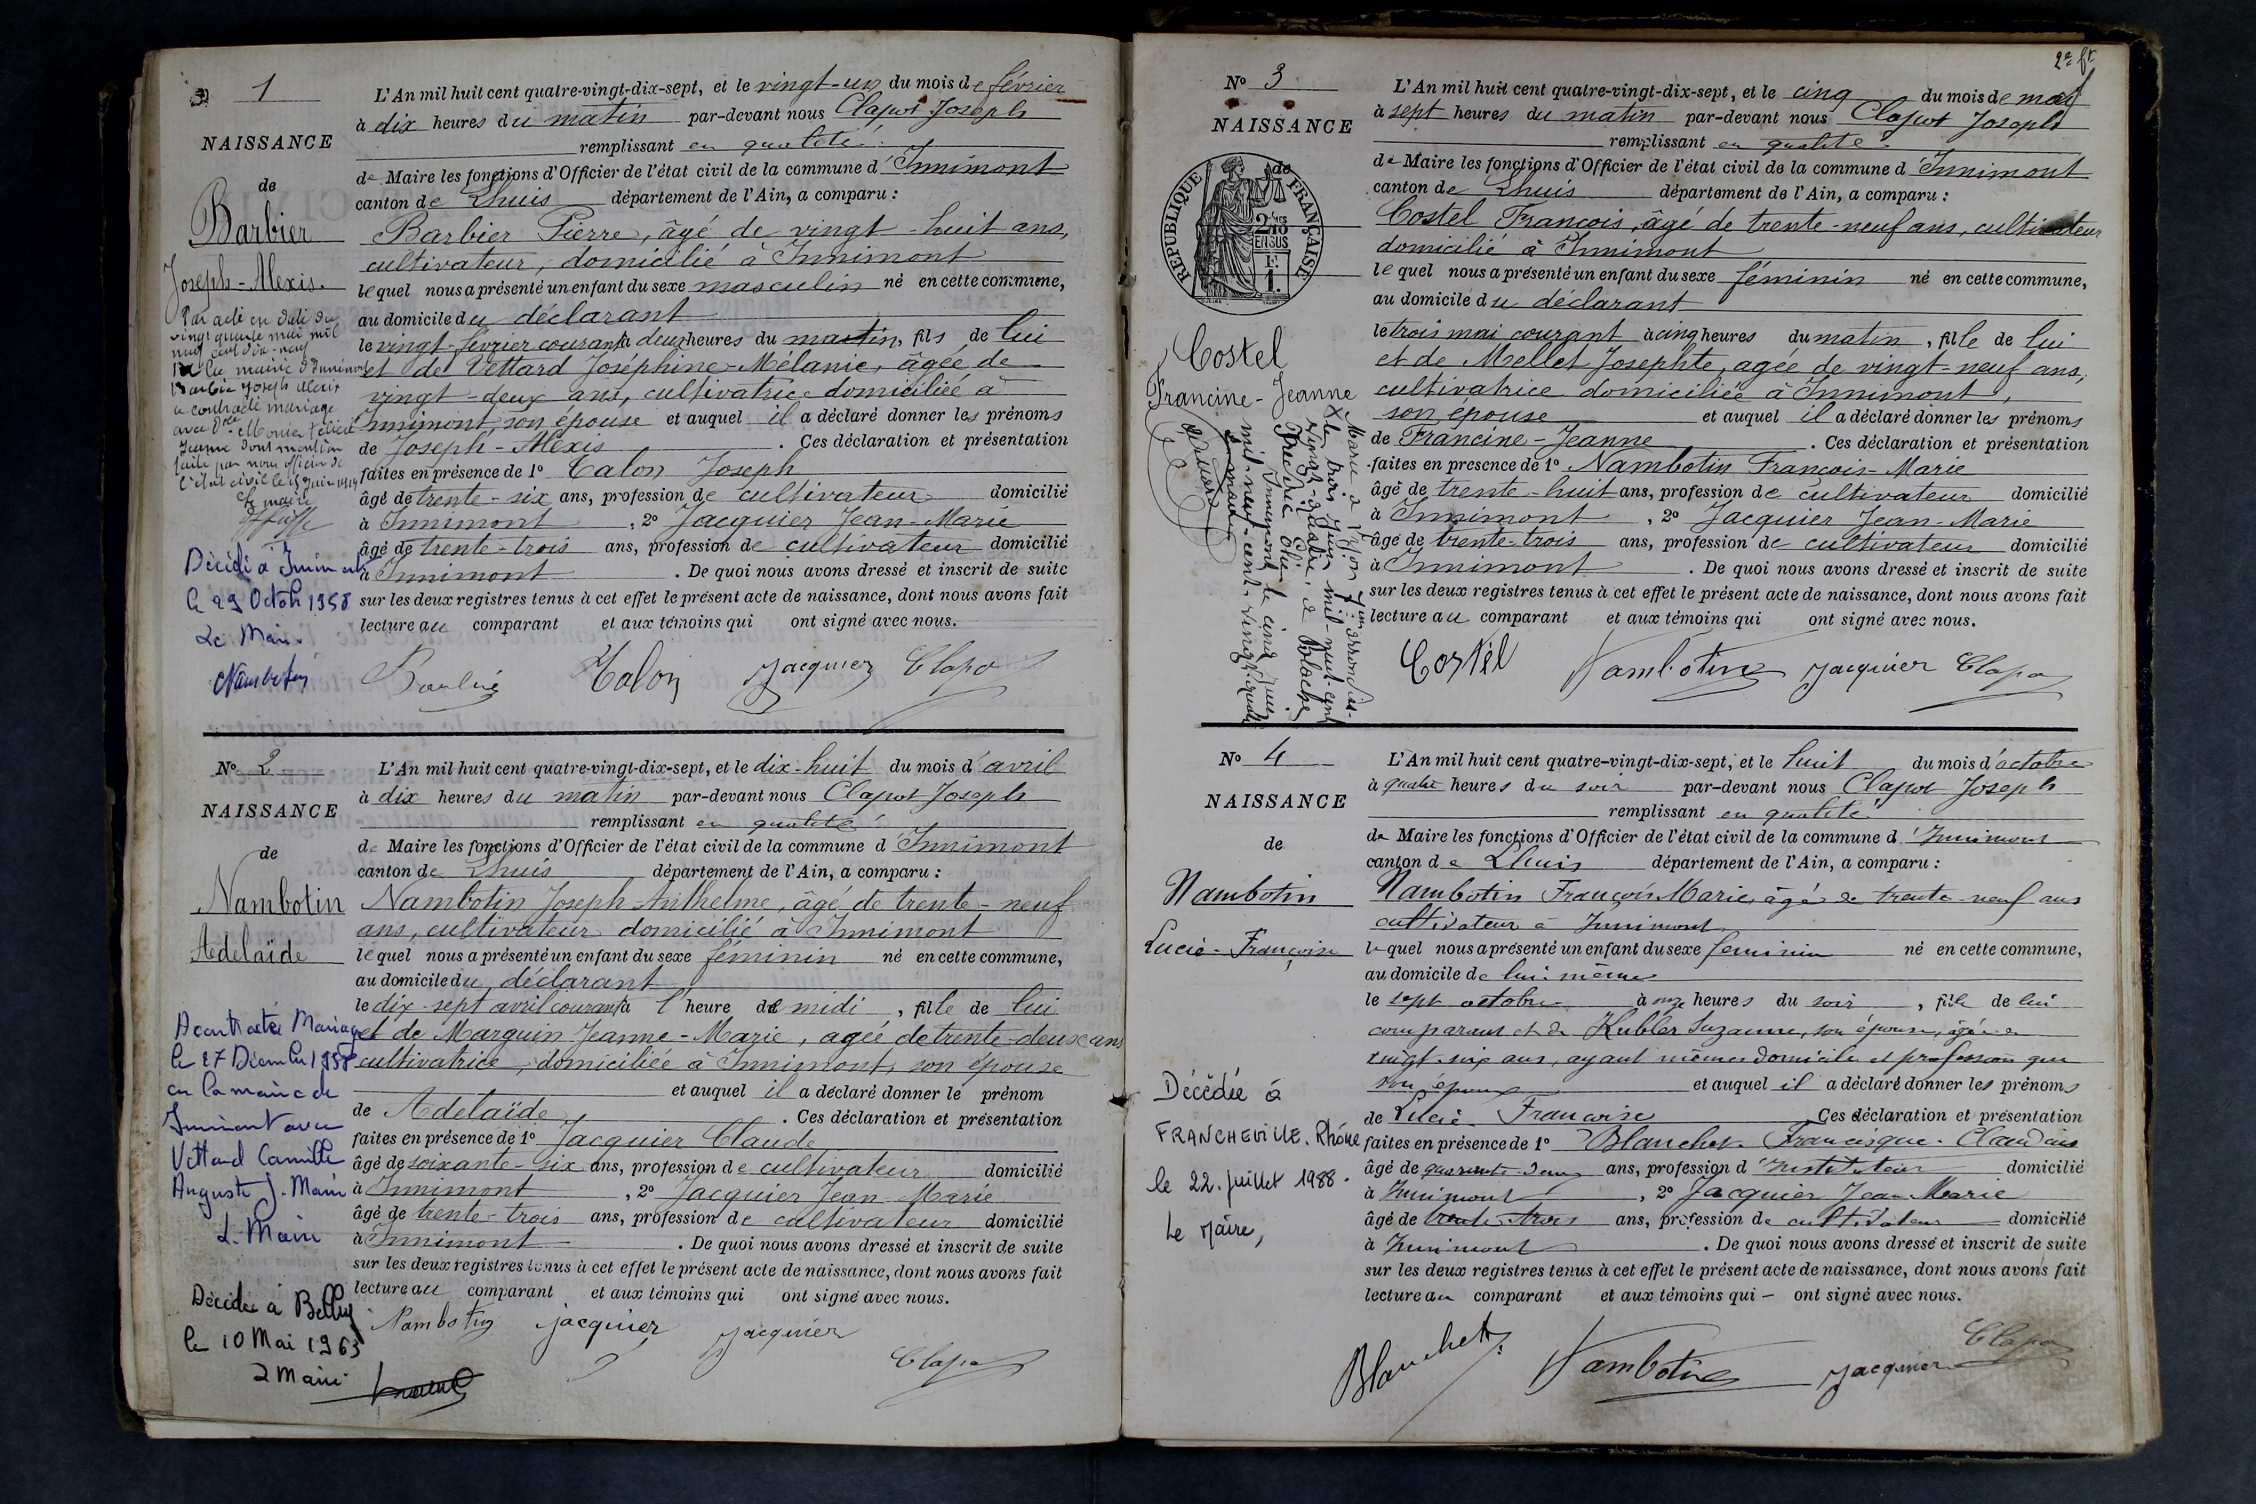 N° 1
NAISSANCE
de
Barbier
Joseph-Alexis.
Par acte en date du
vingt quatre mai mil
neuf cent dix-neuf
mairie d'Innimont
Barbier Joseph Alexis
a contracté mariage
avec Dlle Monier Félicie
Jeanne dont mention
faite par nous officier de
l'état civil le 15 Juin 1919
Le maire
Décédé à Innimont
le 29 Octob 1958
Le Maire
Nambotin
L'An mil huit cent quatre-vingt-dix-sept, et le vingt-un du mois de février
à dix heures du matin par-devant nous Clapot Joseph
remplissant en qualité
de Maire les fonctions d'Officier de l'état civil de la commune d'Innimont
canton de Lhuis département de l'Ain, a comparu :
Barbier Pierre, âgé de vingt-huit ans,
cultivateur, domicilié à Innimont
lequel nous a présenté un enfant du sexe masculin né en cette commune,
au domicile du déclarant
le vingt-février courant à deux heures du matin, fils de lui
et de Vettard Joséphine-Mélanie, âgée de
vingt-deux ans, cultivatrice domiciliée à
Innimont, son épouse et auquel il a déclaré donner les prénoms
de Joseph-Alexis. Ces déclaration et présentation
faites en présence de 1° Talon Joseph
âgé de trente-six ans, profession de cultivateur domicilié
à Innimont, 2° Jacquier Jean-Marie
âgé de trente-trois ans, profession de cultivateur domicilié
à Innimont. De quoi nous avons dressé et inscrit de suite
sur les deux registres tenus à cet effet le présent acte de naissance, dont nous avons fait
lecture au comparant et aux témoins qui ont signé avec nous.
Talon Jacquier Clapot
N° 2
NAISSANCE
de
Nambotin
Adelaïde
A contracté Mariage
le 27 Décembre 1958
en la mairie de
Innimont avec
Vettard Camille
Auguste J. Marie
L. Maire
Décédée à Belley
le 10 Mai 1963
L Maire
L'An mil huit cent quatre-vingt-dix-sept, et le dix-huit du mois d'avril
à dix heures du matin par-devant nous Clapot Joseph
remplissant en qualité
de Maire les fonctions d'Officier de l'état civil de la commune d'Innimont
canton de Lhuis département de l'Ain, a comparu :
Nambotin Joseph-Anthelme, âgé de trente-neuf
ans, cultivateur domicilié à Innimont
lequel nous a présenté un enfant du sexe féminin né en cette commune,
au domicile du déclarant
le dix-sept avril courant à l'heure de midi, fille de lui
et de Marguin Jeanne-Marie, agée de trente-deux ans
cultivatrice, domiciliée à Innimont, son épouse
et auquel il a déclaré donner le prénom
de Adelaïde. Ces déclaration et présentation
faites en présence de 1° Jacquier Claude
âgé de soixante-six ans, profession de cultivateur domicilié
à Innimont, 2° Jacquier Jean-Marie
âgé de trente-trois ans, profession de cultivateur domicilié
à Innimont. De quoi nous avons dressé et inscrit de suite
sur les deux registres tenus à cet effet le présent acte de naissance, dont nous avons fait
lecture au comparant et aux témoins qui ont signé avec nous.
Nambotin Jacquier Jacquier
Clapot
2e ft
N° 3
NAISSANCE
de
RÉPUBLIQUE FRANÇAISE
Costel
Francine-Jeanne
Mariée à Lyon 1er arrondis-
le trois Juin mil-neuf-cent
vingt-quatre, à Blache
Innimont le cinq Juin
mil-neuf-cent-vingt-quatre
Le maire
L'An mil huit cent quatre-vingt-dix-sept, et le cinq du mois de mai
à sept heures du matin par-devant nous Clapot Joseph
remplissant en qualité
de Maire les fonctions d'Officier de l'état civil de la commune d'Innimont
canton de Lhuis département de l'Ain, a comparu :
Costel François, âgé de trente-neuf ans, cultivateur
domicilié à Innimont
lequel nous a présenté un enfant du sexe féminin né en cette commune,
au domicile du déclarant
le trois mai courant à cinq heures du matin, fille de lui
et de Mellet Josephte, agée de vingt-neuf ans,
cultivatrice domiciliée à Innimont,
son épouse et auquel il a déclaré donner les prénoms
de Francine-Jeanne. Ces déclaration et présentation
faites en présence de 1° Nambotin François-Marie
âgé de trente-huit ans, profession de cultivateur domicilié
à Innimont, 2° Jacquier Jean-Marie
âgé de trente-trois ans, profession de cultivateur domicilié
à Innimont. De quoi nous avons dressé et inscrit de suite
sur les deux registres tenus à cet effet le présent acte de naissance, dont nous avons fait
lecture au comparant et aux témoins qui ont signé avec nous.
Costel Nambotin Jacquier Clapot
N° 4
NAISSANCE
de
Nambotin
Lucie-Françoise
Décédée à
FRANCHEVILLE. Rhône
le 22. juillet 1988.
Le Maire,
L'An mil huit cent quatre-vingt-dix-sept, et le huit du mois d'octobre
à quatre heures du soir par-devant nous Clapot Joseph
remplissant en qualité
de Maire les fonctions d'Officier de l'état civil de la commune d'Innimont
canton de Lhuis département de l'Ain, a comparu :
Nambotin François Marie, âgé de trente neuf ans
cultivateur à Innimont
lequel nous a présenté un enfant du sexe feminin né en cette commune,
au domicile de lui-même
le sept octobre à onze heures du soir, fille de lui
comparant et de Kubler Suzanne, son épouse, âgée de
vingt-six ans, ayant mêmes domicile et profession que
son époux et auquel il a déclaré donner les prénoms
de Lucie Françoise Ces déclaration et présentation
faites en présence de 1° Blanchet Francisque-Claudius
âgé de quarante-deux ans, profession d'Instituteur domicilié
à Innimont, 2° Jacquier Jean Marie
âgé de trente-trois ans, profession de cultivateur domicilié
à Innimont. De quoi nous avons dressé et inscrit de suite
sur les deux registres tenus à cet effet le présent acte de naissance, dont nous avons fait
lecture au comparant et aux témoins qui – ont signé avec nous.
Blanchet Nambotin Jacquier Clapot